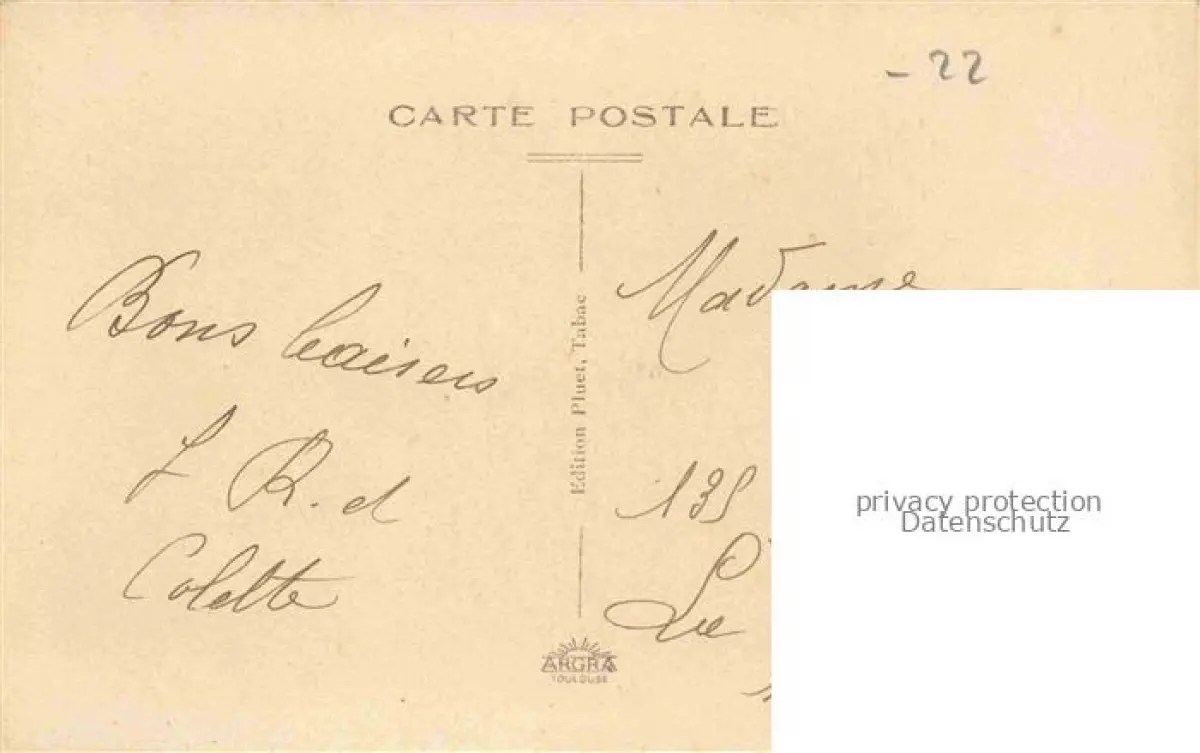 - 22
CARTE POSTALE
Bons baisers
R. et
Colette
Edition Pluet, Tabac
ARGRA
TOULOUSE
Madame
135
Le
privacy protection
Datenschutz